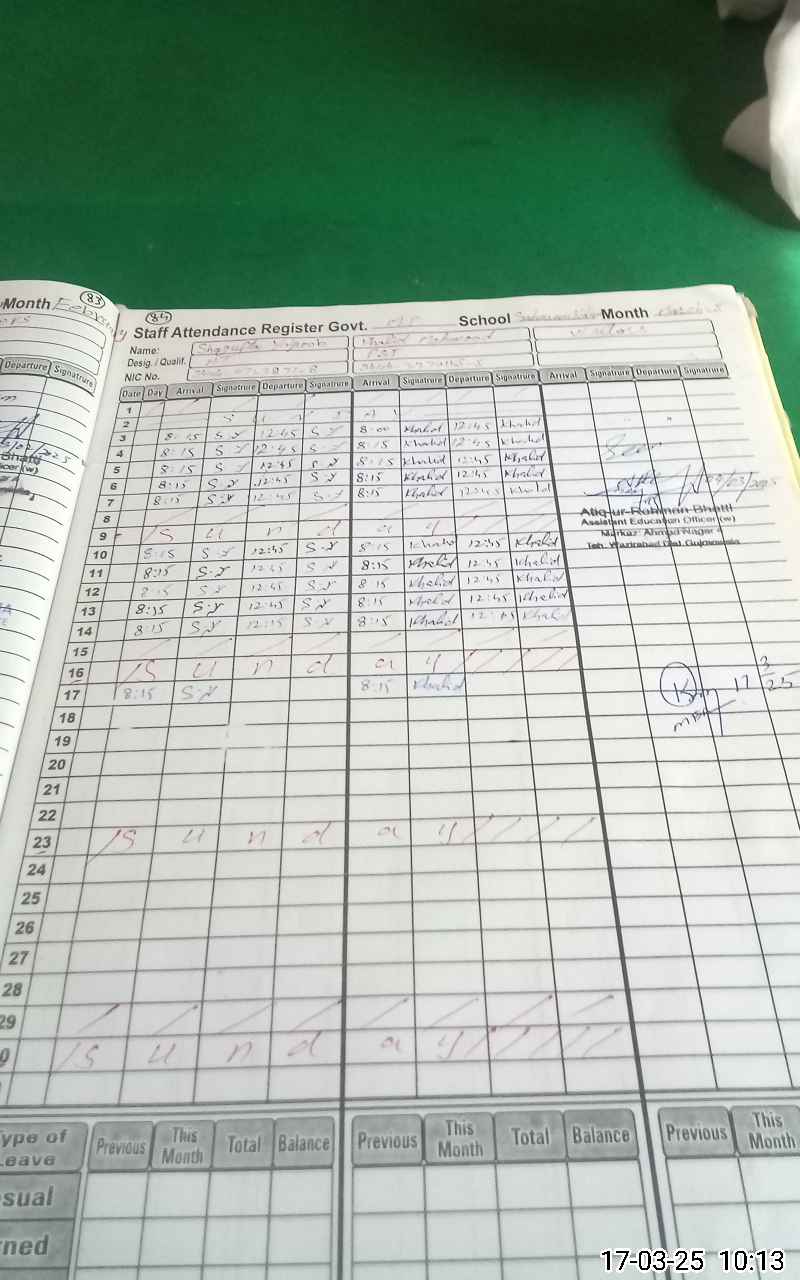 Month February 83
Departure Signature
84
Staff Attendance Register Govt. School Month
Name: Khalid Mahmood
Desig. / Qualif. PST
NIC No.
Date Day Arrival Signature Departure Signature Arrival Signature Departure Signature Arrival Signature Departure Signature
1
2 S u n d a y
3 8:15 S.Y 12:45 S.Y 8:00 Khalid 12:45 Khalid
4 8:15 S.Y 12:45 S.Y 8:15 Khalid 12:45 Khalid
5 8:15 S.Y 12:45 S.Y 8:15 Khalid 12:45 Khalid
6 8:15 S.Y 12:45 S.Y 8:15 Khalid 12:45 Khalid
7 8:15 S.Y 12:45 S.Y 8:15 Khalid 12:45 Khalid
Seen
Atiq-ur-Rehman Bhatti
Assistant Education Officer (w)
Markaz Ahmad Nagar
Teh. Wazirabad Dist. Gujranwala
8
9 S u n d a y
10 8:15 S.Y 12:45 S.Y 8:15 Khalid 12:45 Khalid
11 8:15 S.Y 12:45 S.Y 8:15 Khalid 12:45 Khalid
12 8:15 S.Y 12:45 S.Y 8:15 Khalid 12:45 Khalid
13 8:15 S.Y 12:45 S.Y 8:15 Khalid 12:45 Khalid
14 8:15 S.Y 12:15 S.Y 8:15 Khalid 12:45 Khalid
15
16 S u n d a y
17 8:15 S.Y 8:15 Khalid
17 3 25
18
19
20
21
22
23 S u n d a y
24
25
26
27
28
29
S u n d a y
Type of Leave Previous This Month Total Balance Previous This Month Total Balance Previous This Month
17-03-25 10:13